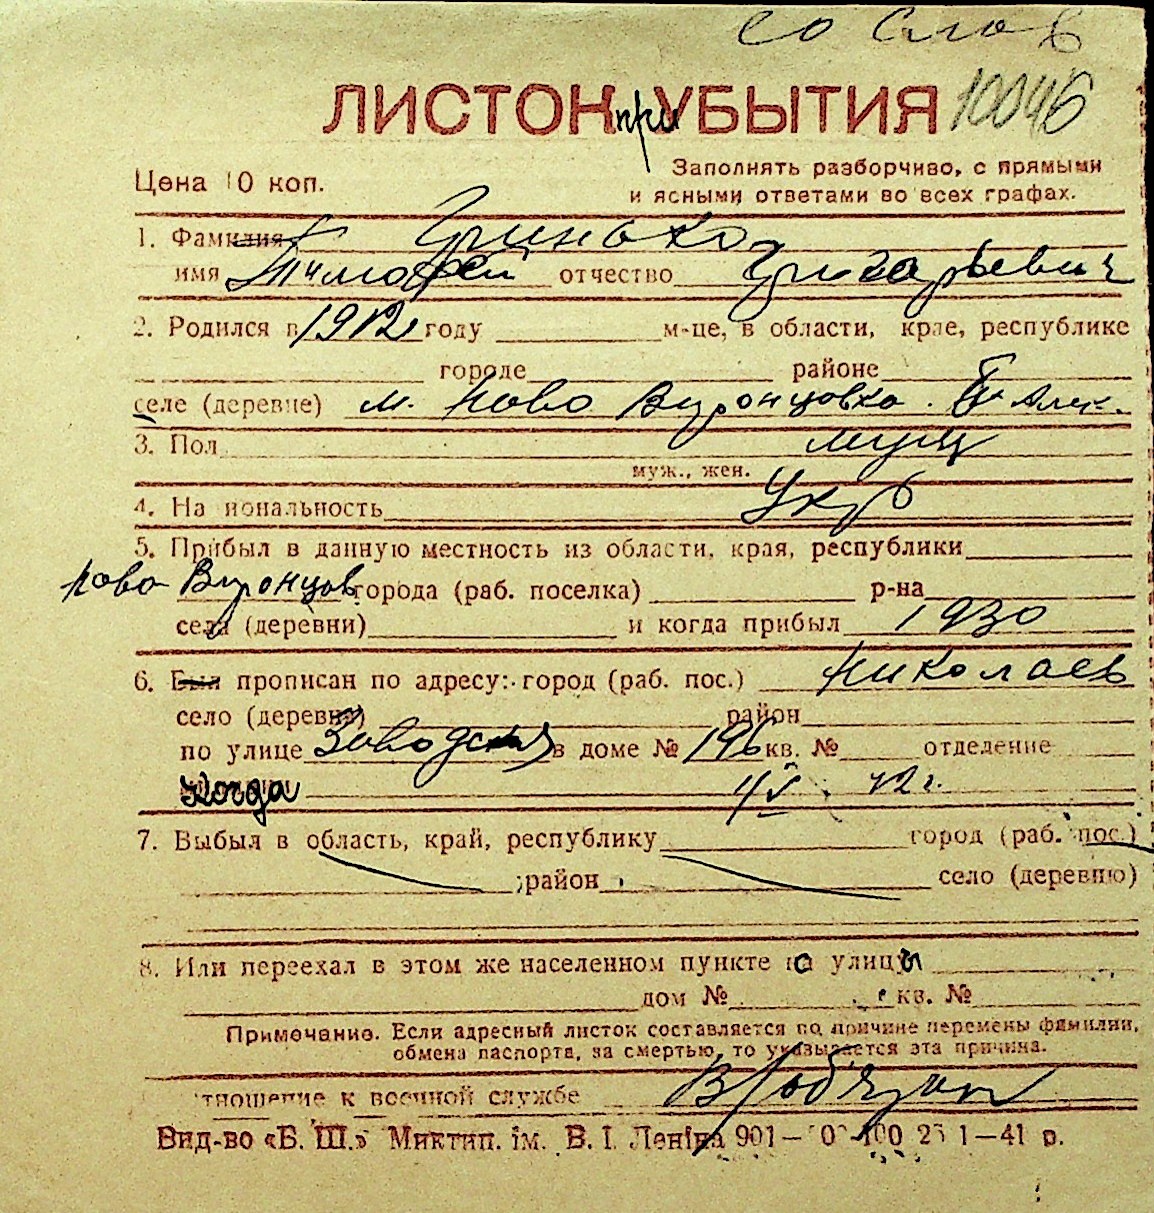 со слов
ЛИСТОК при УБЫТИЯ 10046
Цена 10 коп.
Заполнять разборчиво, с прямыми
и ясными ответами во всех графах.
1. Фамилия Гринько
имя Тимофей отчество Григорьевич
2. Родился в 1912 году м-це, в области, крае, республике
городе районе
селе (деревне) м. Ново Воронцовка.
3. Пол мущ
муж., жен.
4. На иональность Укр
5. Прибыл в данную местность из области, края, республики
Ново-Воронцов города (раб. поселка) р-на
села (деревни) и когда прибыл 1930
6. Был прописан по адресу: город (раб. пос.) Николаев
село (деревня) район
по улице Заводская в доме № 196 кв. № отделение
Когда 1/V 42 г.
7. Выбыл в область, край, республику город (раб. пос.)
район село (деревню)
8. Или переехал в этом же населенном пункте со улицы
дом № кв. №
Примечание. Если адресный листок составляется по причине перемены фамилии,
обмена паспорта, за смертью, то указывается эта причина.
тношение к военной службе В/обязан
Вид-во «Б. Ш.» Миктип. ім. В. І. Леніна 901— 100 1—41 р.